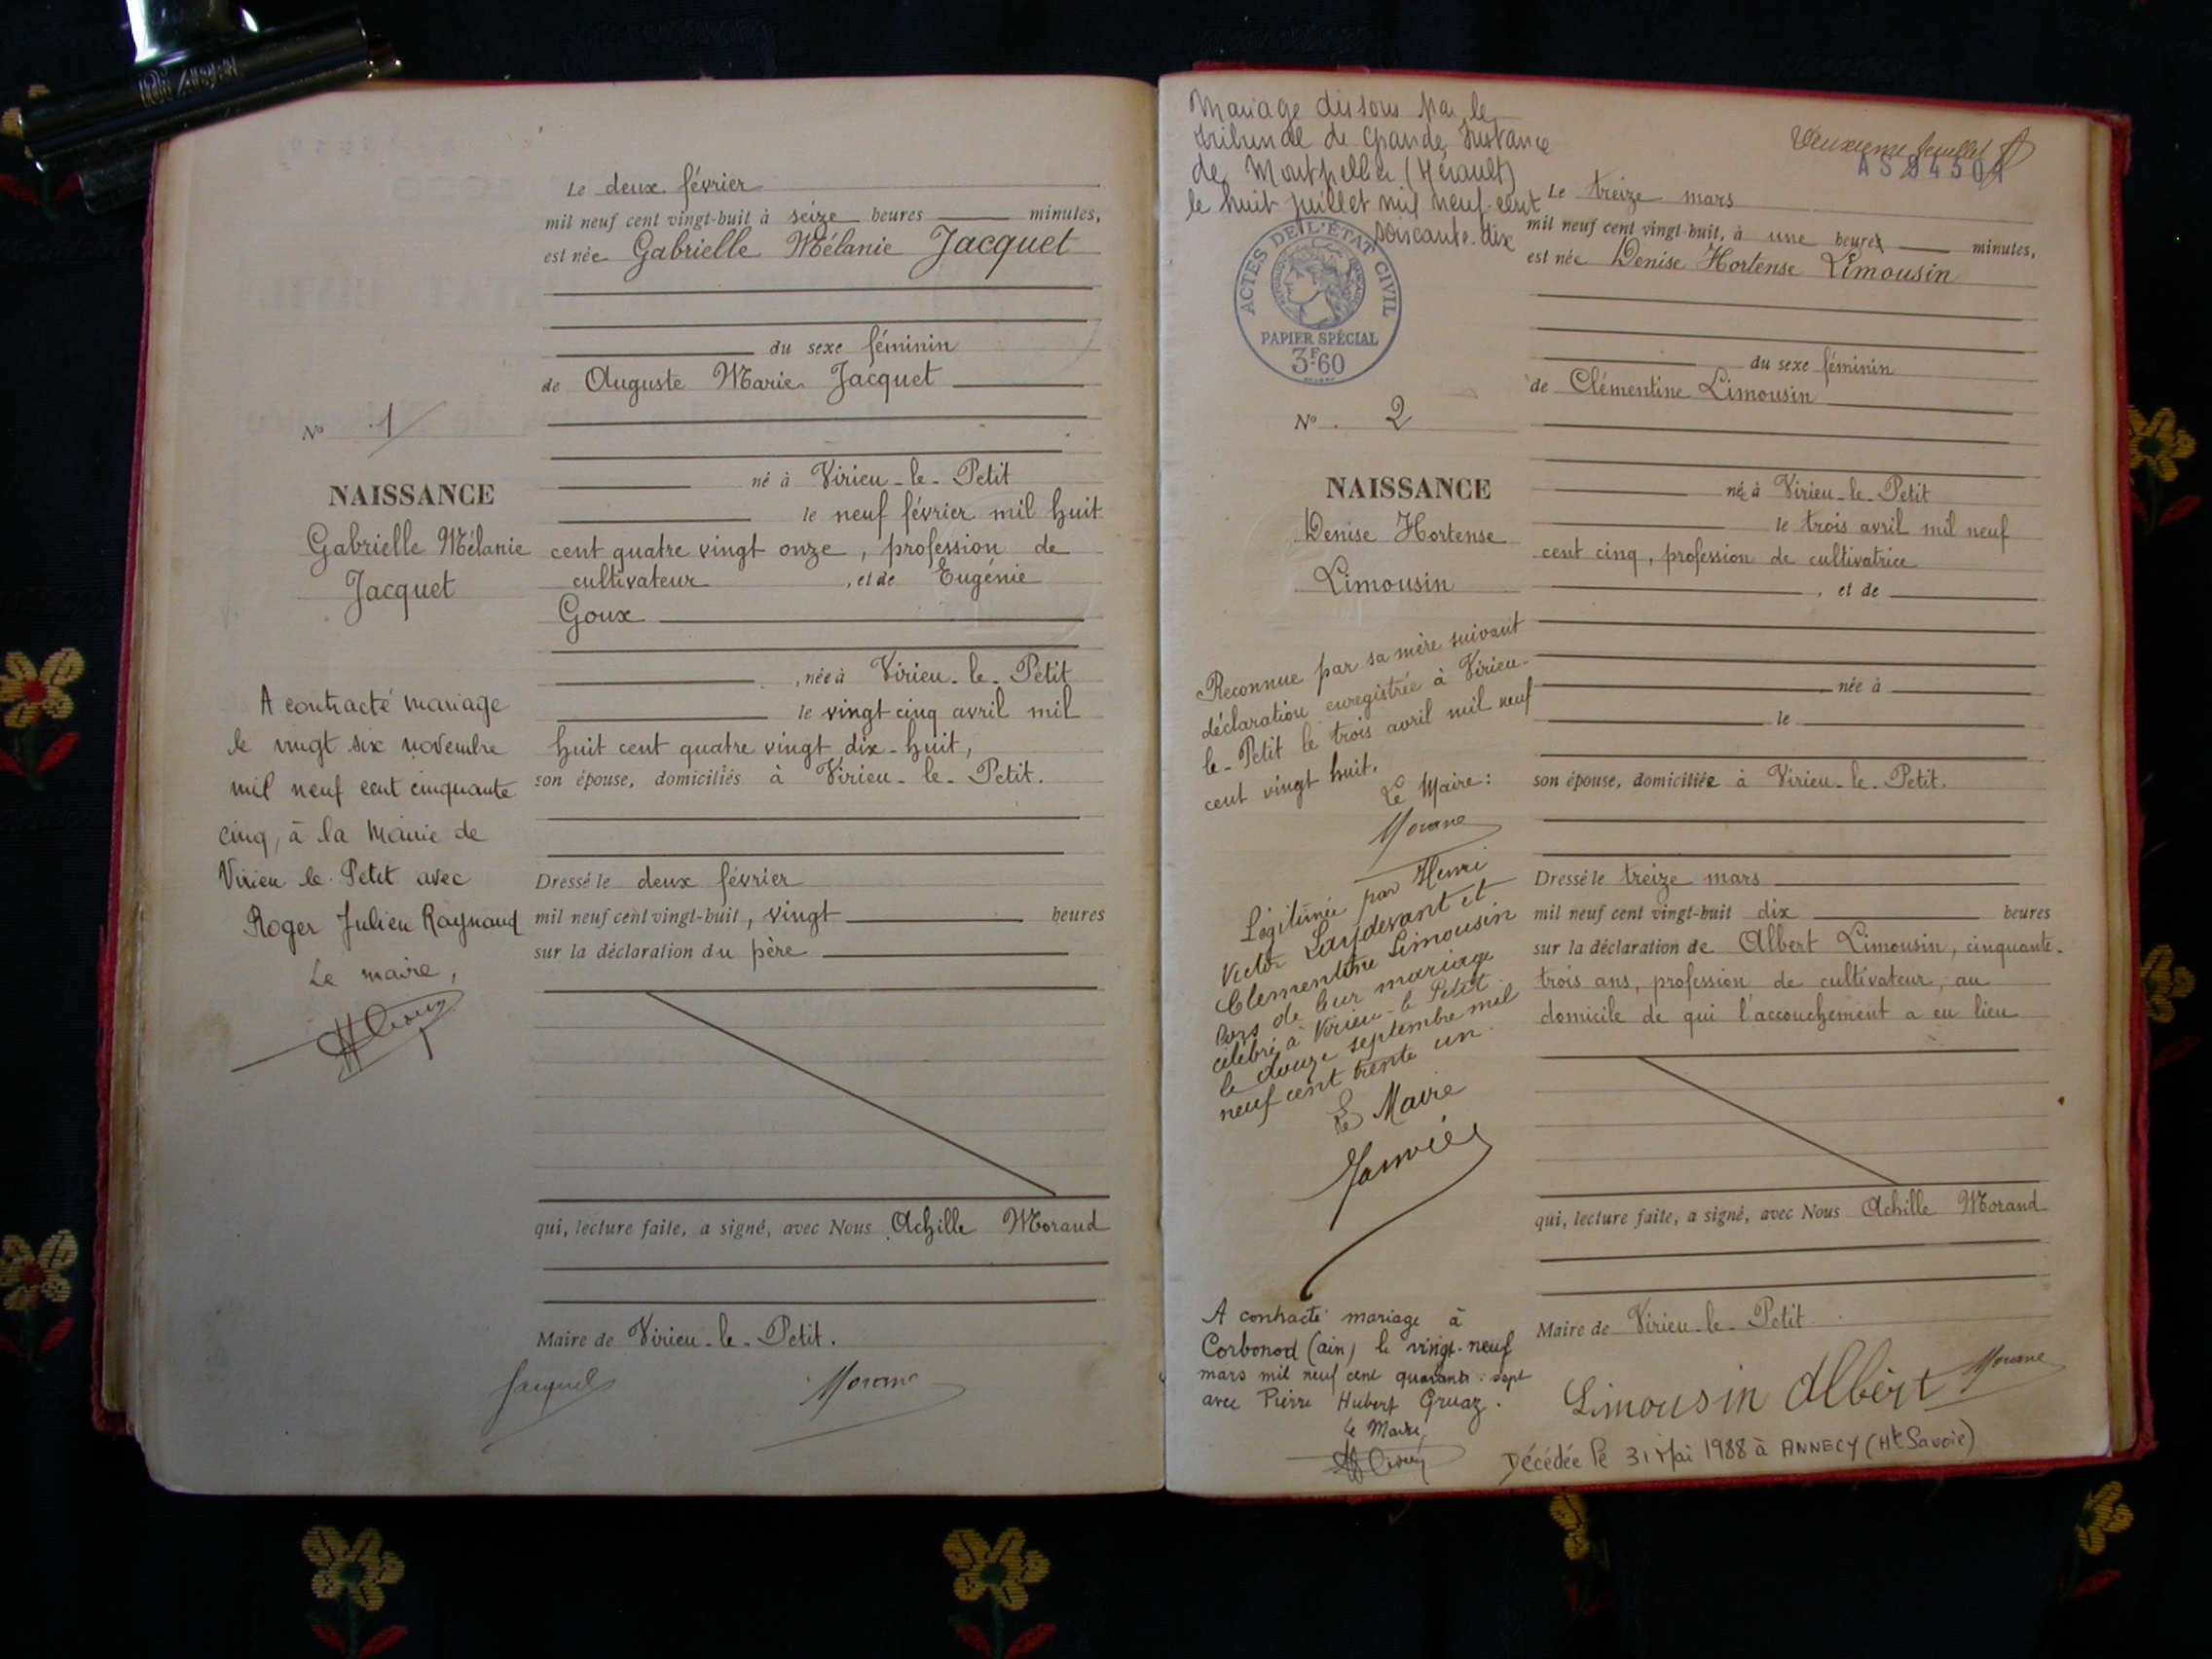 Le deux février
mil neuf cent vingt-huit à seize heures minutes,
est née Gabrielle Mélanie Jacquet
du sexe féminin
de Auguste Marie Jacquet
N° 1
né à Virieu-le-Petit
NAISSANCE
le neuf février mil huit
Gabrielle Mélanie
Jacquet
cent quatre vingt onze, profession de
cultivateur, et de Eugénie
Goux
, née à Virieu-le-Petit
le vingt cinq avril mil
huit cent quatre vingt dix-huit,
son épouse, domiciliés à Virieu-le-Petit.
A contracté mariage
le vingt six novembre
mil neuf cent cinquante
cinq, à la Mairie de
Virieu le Petit avec
Roger Julien Raynaud
Le maire,
Dressé le deux février
mil neuf cent vingt-huit, vingt heures
sur la déclaration du père
qui, lecture faite, a signé, avec Nous Achille Morand
Maire de Virieu-le-Petit.
Jacquet
Mariage dissous par le
tribunal de Grande Instance
de Montpellier (Hérault)
le huit juillet mil neuf cent
soixante-dix
Deuxième feuillet
ACTES DE L'ÉTAT CIVIL
PAPIER SPÉCIAL
3F60
Le treize mars
mil neuf cent vingt-huit, à une heure minutes,
est née Denise Hortense Limousin
du sexe féminin
de Clémentine Limousin
N° 2
née à Virieu-le-Petit
NAISSANCE
le trois avril mil neuf
Denise Hortense
Limousin
cent cinq, profession de cultivatrice
, et de
née à
le
son épouse, domiciliée à Virieu-le-Petit.
Reconnue par sa mère suivant
déclaration enregistrée à Virieu-
le-Petit le trois avril mil neuf
cent vingt huit.
Le Maire :
Légitimée par Henri
Victor Laydevant et
Clementine Limousin
lors de leur mariage
célébré à Virieu-le Petit
le douze septembre mil
neuf cent trente un.
Le Maire
Janvier
Dressé le treize mars
mil neuf cent vingt-huit dix heures
sur la déclaration de Albert Limousin, cinquante-
trois ans, profession de cultivateur, au
domicile de qui l'accouchement a eu lieu
qui, lecture faite, a signé, avec Nous Achille Morand
Maire de Virieu-le-Petit
A contracté mariage à
Corbonod (ain) le vingt-neuf
mars mil neuf cent quarante-sept
avec Pierre Hubert Gruaz.
Le Maire,
Limousin Albert
Décédée le 31 Mai 1988 à ANNECY (Hte Savoie)